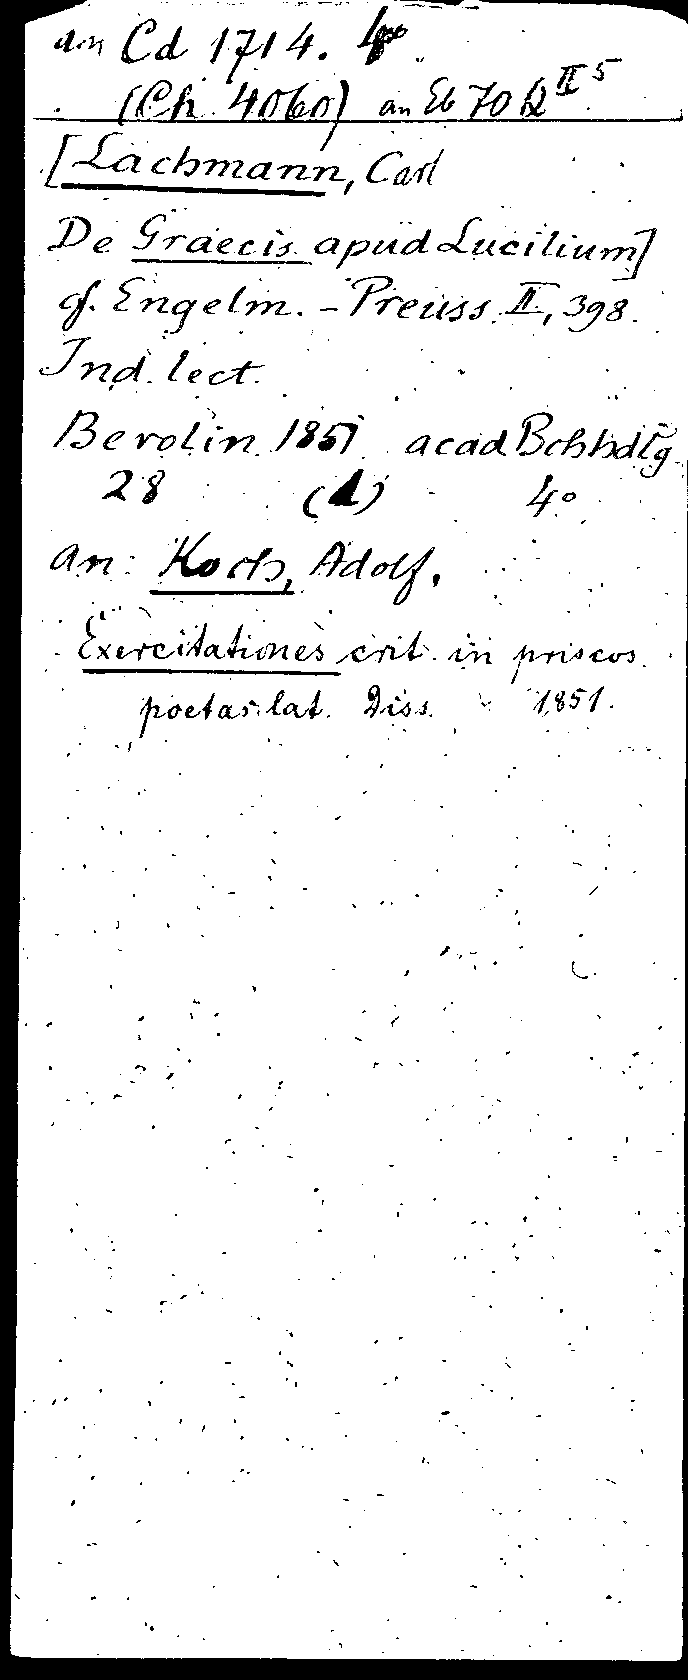 an Cd 1714. 4°
(Ch 4060) an Eb 70 R II 5
[Lachmann, Carl
De Graecis apud Lucilium]
cf. Engelm. - Preuss. II, 398.
Ind. lect.
Berolin 1851 acad Bchhdlg
28 (1) 4°
an: Koch, Adolf.
Exercitationes crit. in priscos
poetas lat. Diss. 1851.